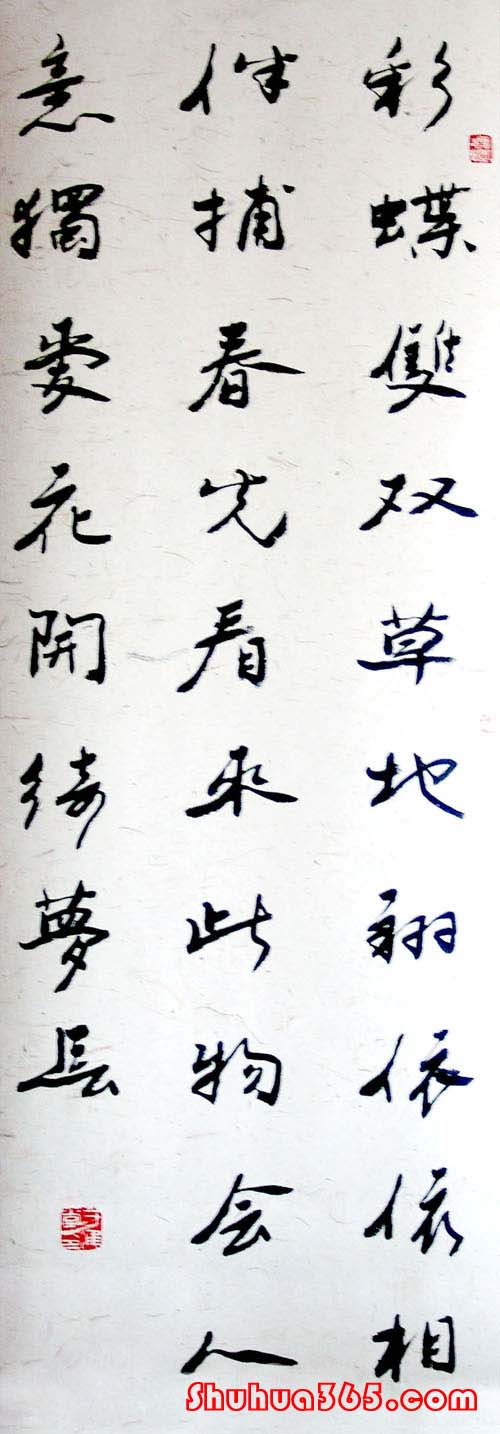 彩蝶雙双草地翔依依相
伴捕春光看来此物会人
意獨愛花開绮夢長
Shuhua365.com